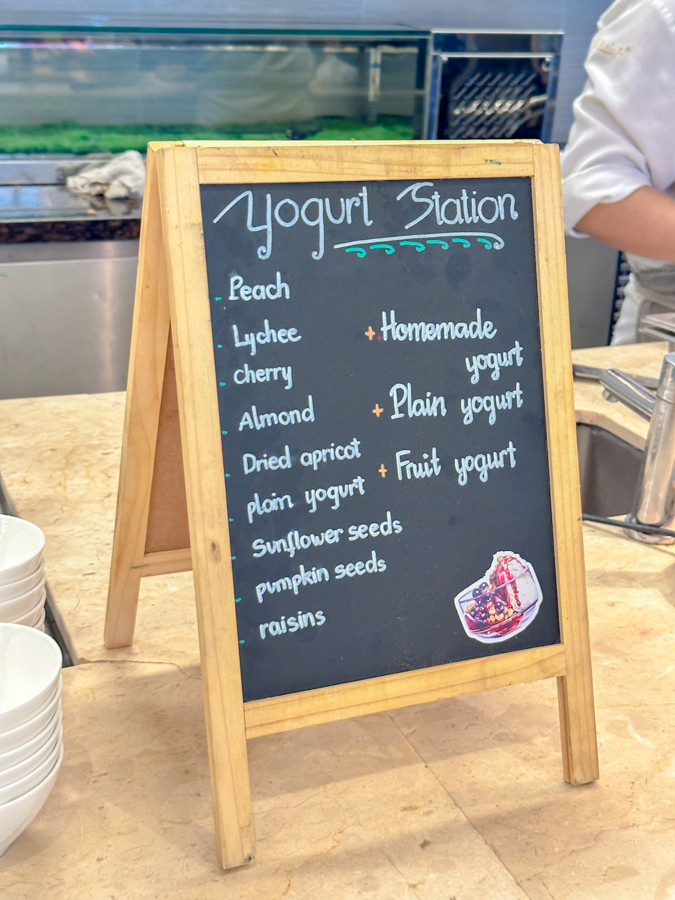 Yogurt Station
Peach
Lychee
cherry
Almond
Dried apricot
plain yogurt
Sunflower seeds
pumpkin seeds
raisins
+ Homemade
yogurt
+ Plain yogurt
+ Fruit yogurt